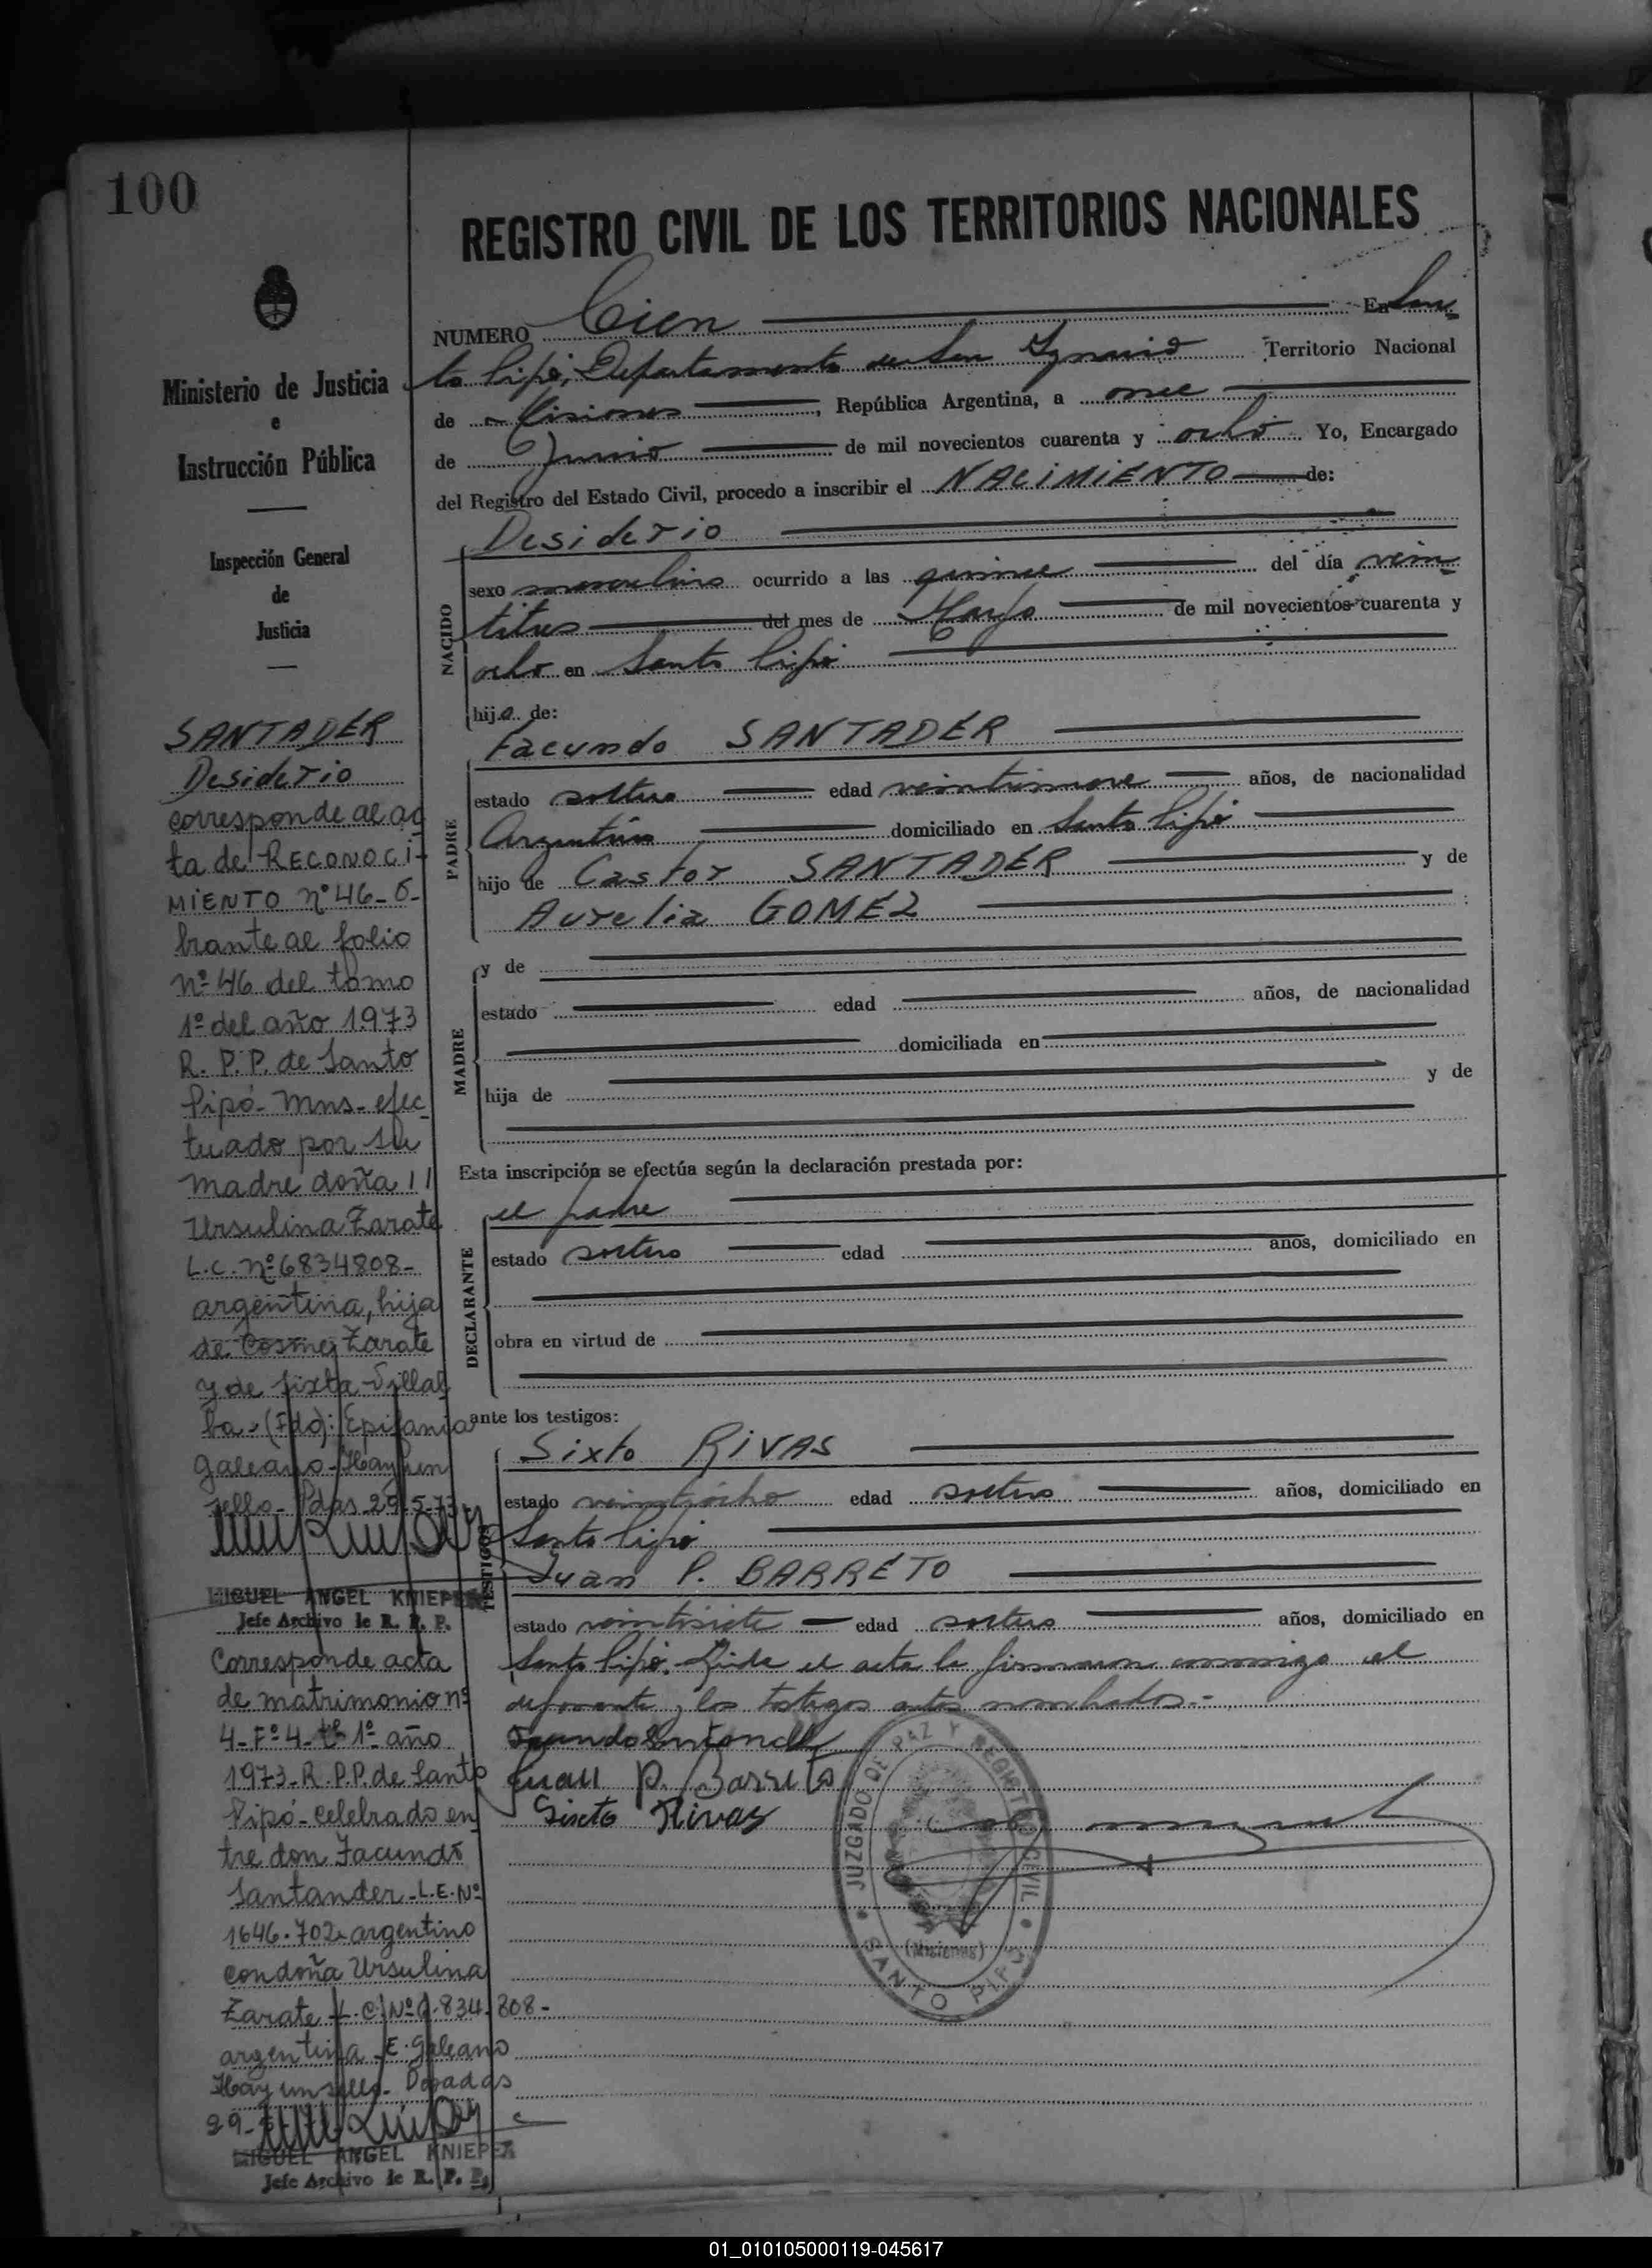 100
REGISTRO CIVIL DE LOS TERRITORIOS NACIONALES
Ministerio de Justicia
e
Instrucción Pública
Inspección General
de
Justicia
SANTADER
Desiderio
corresponde al ac
ta de RECONOCI-
MIENTO nº 46-O-
brante al folio
nº 46 del tomo
1º del año 1973
R. P. P. de Santo
Pipó- Mns- efec
tuado por su
madre doña
Ursulina Zarate
L.C. Nº 6834808-
argentina, hija
de Cosme Zarate
y de Sixta Villal
ba-(Fdo): Epifania
Galeano-Hay un
sello- Pdas-29-5-73
MIGUEL ANGEL KNIEPER
Jefe Archivo de R. P. P.
Corresponde acta
de matrimonio nº
4-Fº4-tº 1º año
1973-R.P.P. de Santo
Pipó-celebrado en
tre don Facundo
Santander-L.E.Nº
1646.702 argentino
con doña Ursulina
Zarate L.C.Nº 6.834.808-
argentina E. Galeano
Hay un sello- Posadas
29-
MIGUEL ANGEL KNIEPER
Jefe Archivo de R. P. P.
NUMERO Cien En San
to Pipó, Departamento de San Ygnacio Territorio Nacional
de Misiones, República Argentina, a once
de Junio de mil novecientos cuarenta y ocho Yo, Encargado
del Registro del Estado Civil, procedo a inscribir el NACIMIENTO de:
NACIDO
Desiderio
sexo masculino ocurrido a las quince del día vein
titres del mes de Mayo de mil novecientos cuarenta y
ocho en Santo Pipó
hijo de:
PADRE
Facundo SANTADER
estado soltero edad veintinueve años, de nacionalidad
Argentina domiciliado en Santo Pipó
hijo de Castor SANTADER y de
Aurelia GOMEZ
MADRE
y de
estado edad años, de nacionalidad
domiciliada en
hija de y de
Esta inscripción se efectúa según la declaración prestada por:
DECLARANTE
el padre
estado soltero edad años, domiciliado en
obra en virtud de
ante los testigos:
TESTIGOS
Sixto RIVAS
estado veintiocho edad soltero años, domiciliado en
Santo Pipó
Juan P. BARRETO
estado veintisiete edad soltero años, domiciliado en
Santo Pipó. Leida el acta la firmaron conmigo el
deponente y los testigos antes nombrados.-
Juan P. Barreto
Sixto Rivas
JUZGADO DE PAZ Y REGISTRO CIVIL
(Misiones)
SANTO PIPÓ
01_010105000119-045617